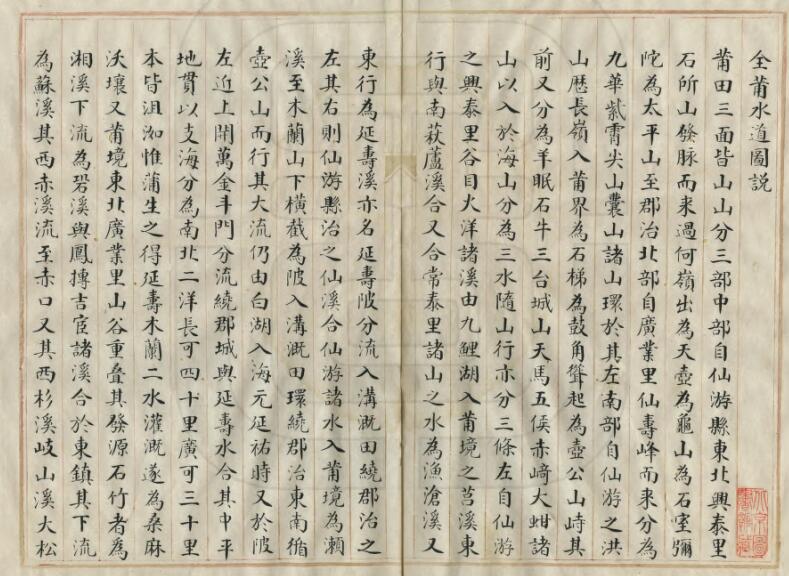 全莆水道圖説
莆田三面皆山山分三部中部自仙游縣東北興泰里
石所山發脉而来過何嶺出為天壺為龜山為石室彌
陀為太平山至郡治北部自廣業里仙壽峰而来分為
九華紫霄尖山囊山諸山環於其左南部自仙游之洪
山歷長嶺入莆界為石梯為鼓角聳起為壺公山峙其
前又分為羊眠石牛三台城山天馬五侯赤﨑大蚶諸
山以入於海山分為三水隨山行亦分三條左自仙游
之興泰里谷目火洋諸溪由九鯉湖入莆境之莒溪東
行與南萩蘆溪合又合常泰里諸山之水為漁滄溪又
東行為延壽溪亦名延壽陂分流入溝溉田繞郡治之
左其右則仙游縣治之仙溪合仙游諸水入莆境為瀬
溪至木蘭山下橫截為陂入溝溉田環繞郡治東南循
壺公山而行其大流仍由白湖入海元延祐時又於陂
左近上開萬金斗門分流繞郡城與延壽水合其中平
地貫以支海分為南北二洋長可四十里廣可三十里
本皆沮洳惟蒲生之得延壽木蘭二水灌溉遂為桑麻
沃壤又莆境東北廣業里山谷重叠其發源石竹者為
湘溪下流為碧溪與鳳摶吉宦諸溪合於東鎮其下流
為蘇溪其西赤溪流至赤口又其西杉溪岐山溪大松